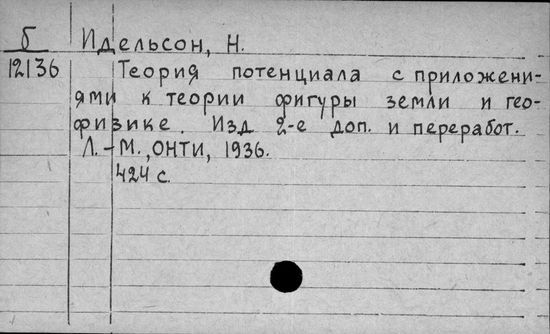 б Идельсон, Н.
12136 Теория потенциала с приложени-
ями к теории фигуры земли и гео-
физике. Изд 2-е доп. и переработ.
Л.-М., ОНТИ, 1936.
424 с.